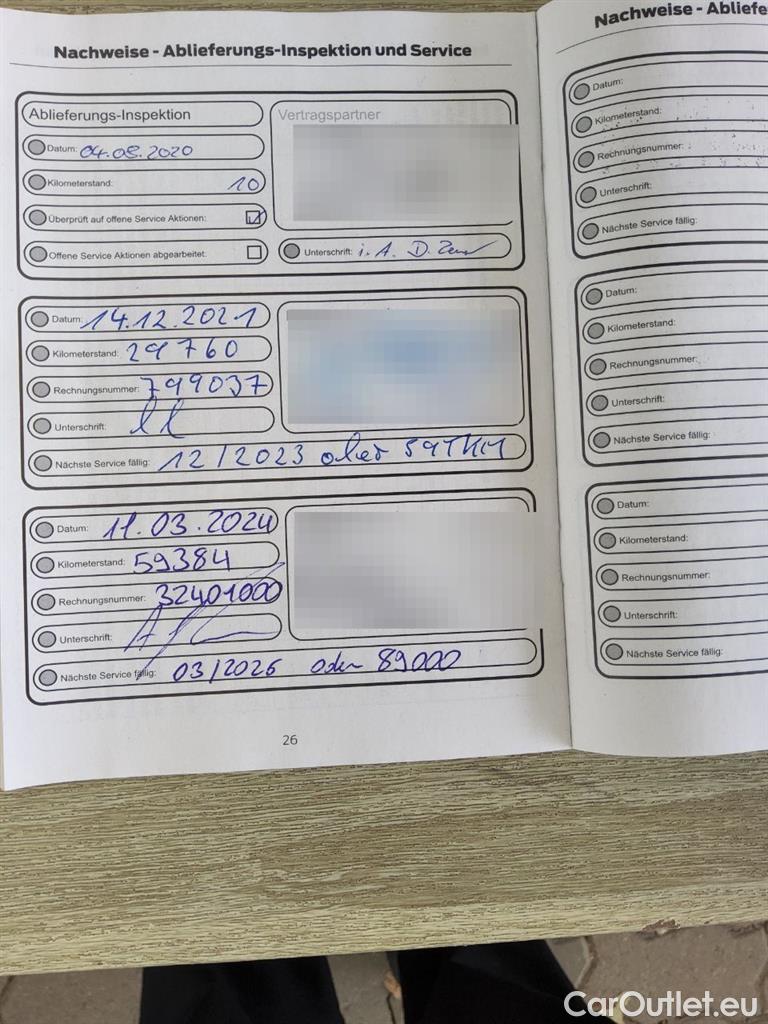 Nachweise - Ablieferungs-Inspektion und Service
Ablieferungs-Inspektion
Vertragspartner
Datum: 04.08.2020
Kilometerstand: 10
Überprüft auf offene Service Aktionen:
Offene Service Aktionen abgearbeitet:
Unterschrift: i. A. D.
Datum: 14.12.2021
Kilometerstand: 29760
Rechnungsnummer: 799037
Unterschrift:
Nächste Service fällig: 12/2023 oder 59TKM
Datum: 11.03.2024
Kilometerstand: 59384
Rechnungsnummer: 32401000
Unterschrift:
Nächste Service fällig: 03/2026 oder 89000
26
Nachweise - Abliefe
Datum:
Kilometerstand:
Rechnungsnummer:
Unterschrift:
Nächste Service fällig:
Datum:
Kilometerstand:
Rechnungsnummer:
Unterschrift:
Nächste Service fällig:
Datum:
Kilometerstand:
Rechnungsnummer:
Unterschrift:
Nächste Service fällig:
CarOutlet.eu